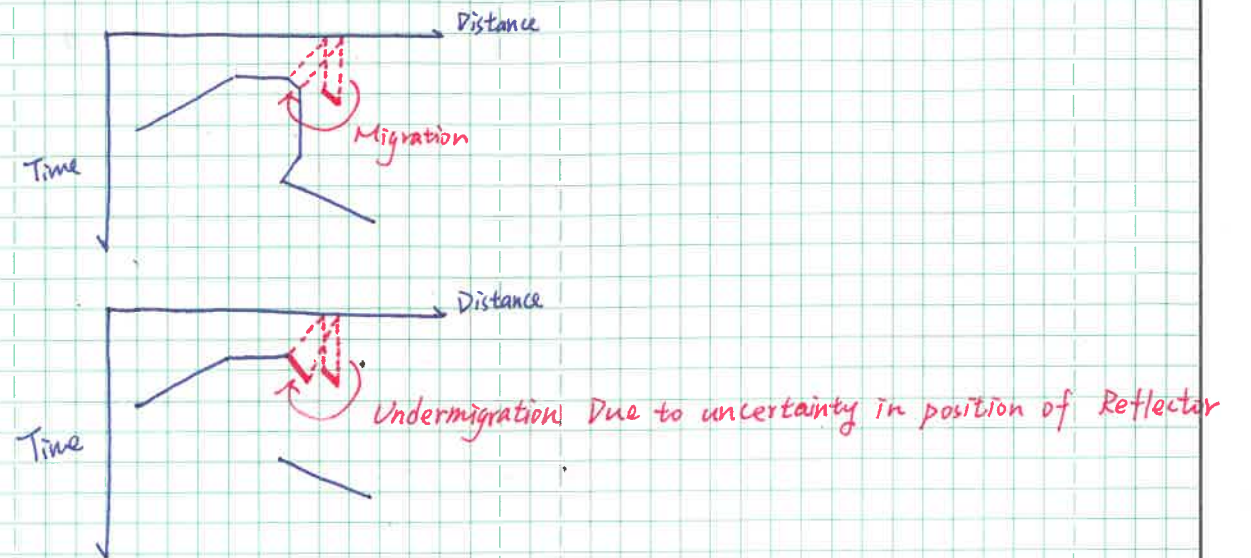 Distance
Migration
Time
Distance
Undermigration Due to uncertainty in position of Reflector
Time